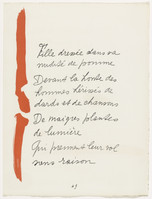 Fille dressée dans sa
nudité de pomme
Devant la horde des
hommes hérissés de
dards et de chansons
De maigres plantes
de lumière
Qui prennent leur vol
sans raison